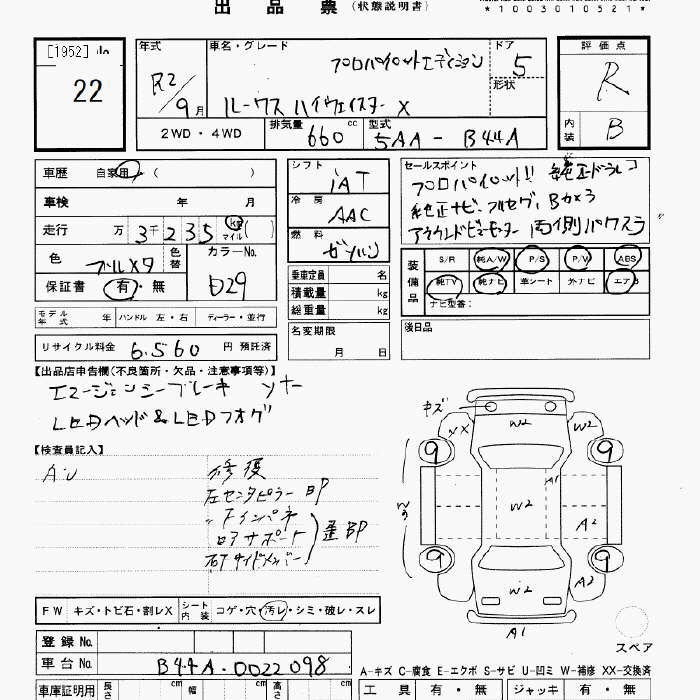 出品票（状態説明書）
*1003010521*
[1952]
22
年式 R2/9月
車名・グレード プロパイロットエディション
ルークス ハイウェイスター X
ドア 5
形状
2WD・4WD 排気量 660 cc 型式 5AA-B44A
評価点 R
内装 B
車歴 自家用 ( )
車検 年 月
走行 万 3千235 km マイル ( )
色 ブルメタ 色替 カラーNo. D29
保証書 有・無
シフト IAT
冷房 AAC
燃料 ガソリン
乗車定員 名
積載量 kg
総重量 kg
セールスポイント
プロパイロット!! 純正ドラレコ
純正ナビ、フルセグ、Bカメラ
アラウンドビューモニター 両側パワスラ
装備品 S/R 純A/W P/S P/V ABS
純TV 純ナビ 革シート 外ナビ エアB
ナビ型番：
モデル年式 年 ハンドル 左・右 ディーラー・並行
リサイクル料金 6,560 円 預託済
名変期限 月 日
後日品
【出品店申告欄(不良箇所・欠品・注意事項等)】
エマージェンシーブレーキ ソナー
LEDヘッド&LEDフォグ
【検査員記入】
AU 修復
左センタピラー BP
〃 Fインパネ
コアサポート 歪BP
右Fサイドメンバー
キズ
XX W2 W2
9 9
A1
W2 A2
9 9
W2 A2
A1
スペア
FW キズ・トビ石・割レX シート内装 コゲ・穴・汚レ・シミ・破レ・スレ
登録No.
車台No. B44A-0022098
A-キズ C-腐食 E-エクボ S-サビ U-凹ミ W-補修 XX-交換済
車庫証明用 長さ cm 幅 cm 高さ cm
工具 有・無 ジャッキ 有・無